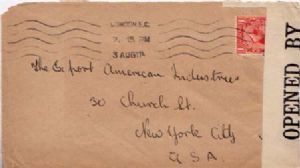 LONDON E.C.
3 AUG 17
The Export American Industries
30 Church St.
New York City
U S A
OPENED BY